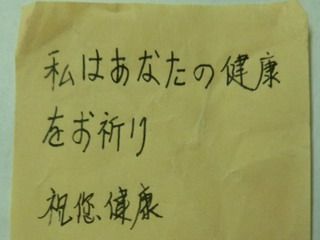 私はあなたの健康
をお祈り
祝您健康